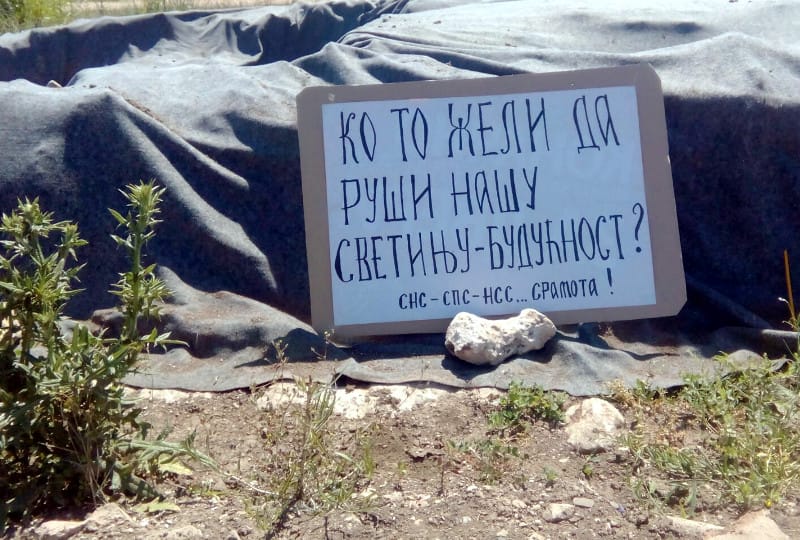 КО ТО ЖЕЛИ ДА
РУШИ НАШУ
СВЕТИЊУ-БУДУЋНОСТ?
СНС-СПС-НСС... СРАМОТА!